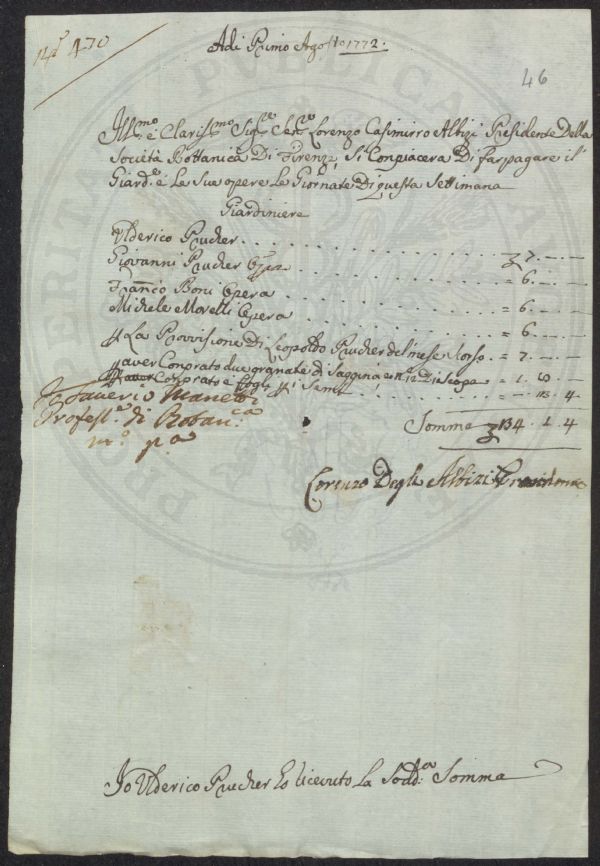 N.° 470
Adi Primo Agosto 1772.
46
Ill.mo e Claris.mo Sig.re Sen.re Lorenzo Casimirro Albizi Presidente Della
Società Bottanica Di Firenze, Si Conpiacera Di far pagare il
Giard.e e Le Sue opere Le Giornate Di questa Settimana
Giardiniere
Ulderico Prucher . . . 7. — —
Giovanni Prucher Opera . . . = 6. — —
Franco Boni Opera . . . = 6. — —
Michele Morelli Opera . . . = 6. — —
La Provvisione Di Leopoldo Prucher del mese Scorso = 7. — —
aver Conprato due granate di Saggina e n.° 12 Di Scopa = 1.
aver Conprato Fogli p. i Semi . . . 4
Somma 34. 1. 4
Io Saverio Manetti
Profess.e di Botan.ca
m.o p.a
Lorenzo Degli Albizi Presidente
Io Ulderico Prucher Ho riceuto La Sodd.a Somma